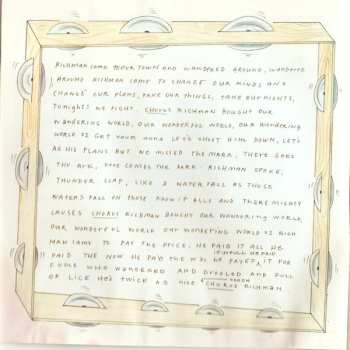 RICHMAN CAME TO OUR TOWN AND WANDERED AROUND, WANDERED
AROUND RICHMAN CAME TO CHANGE OUR MINDS AND
CHANGE OUR PLANS, TAKE OUR THINGS, TAKE OUR NIGHTS,
TONIGHTS WE FIGHT. CHORUS RICHMAN BOUGHT OUR
WANDERING WORLD, OUR WONDERFUL WORLD, OUR WANDERING
WORLD SO GET YOUR GUNS LET'S SHOOT HIM DOWN, LET'S
AS HIS PLANS BUT WE MISSED THE MARK, THERE GOES
THE ARK, HERE COMES THE DARK. RICHMAN SPOKE,
THUNDER CLAP, LIKE A WATERFALL AS THOSE
WATERS FALL ON THOSE KNOW IT ALLS AND THERE MIGHTY
CAUSES CHORUS RICHMAN BOUGHT OUR WONDERING WORLD,
OUR WONDERFUL WORLD OUR WONDERING WORLD SO RICH
MAN CAME TO PAY THE PRICE. HE PAID IT ALL HE
PAID THE NOW HE PAID THE WAS HE PAYED IT FOR
IT IN FULL HE PAID
THOSE WHO WANDERED AND DROOLED AND FULL
OF LICE HE'S TWICE AS NICE CHORUS RICHMAN